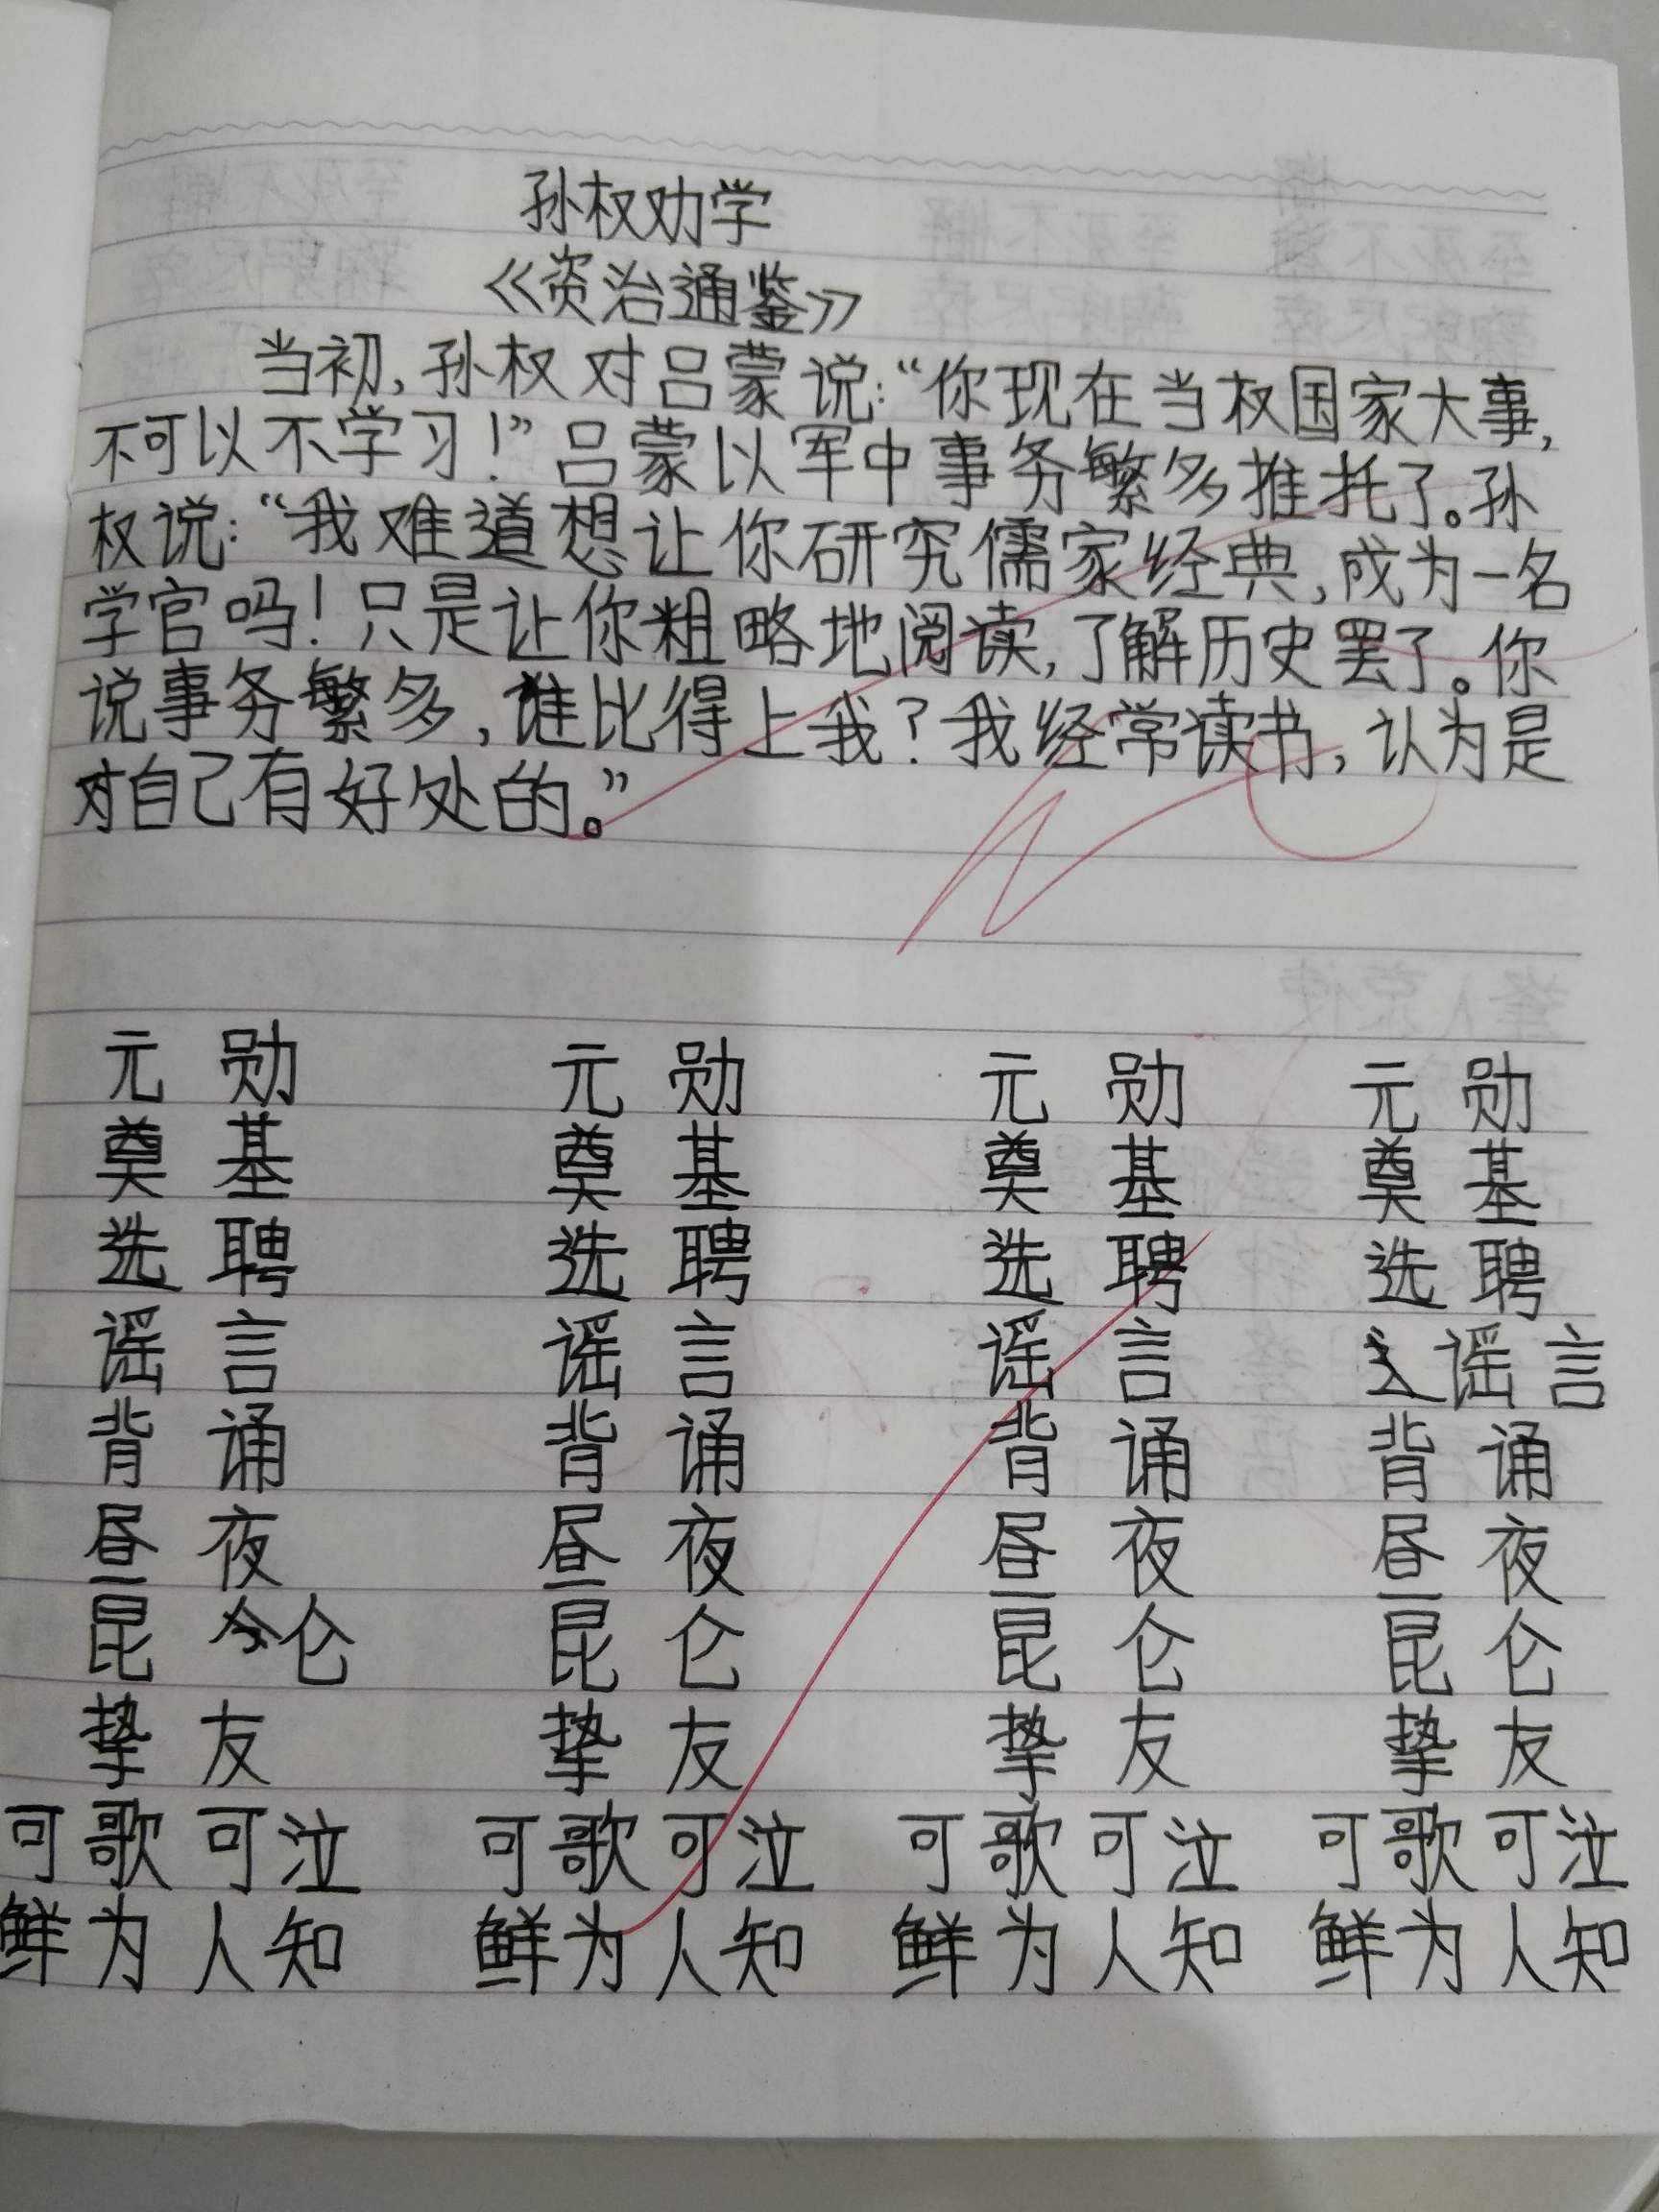 孙权劝学
《资治通鉴》
当初,孙权对吕蒙说:“你现在当权国家大事,
不可以不学习!”吕蒙以军中事务繁多推托了。孙
权说:“我难道想让你研究儒家经典,成为一名
学官吗!只是让你粗略地阅读,了解历史罢了。你
说事务繁多,谁比得上我?我经常读书,认为是
对自己有好处的。”
元勋 元勋 元勋 元勋
奠基 奠基 奠基 奠基
选聘 选聘 选聘 选聘
谣言 谣言 谣言 谣言
背诵 背诵 背诵 背诵
昼夜 昼夜 昼夜 昼夜
昆仑 昆仑 昆仑 昆仑
挚友 挚友 挚友 挚友
可歌可泣 可歌可泣 可歌可泣 可歌可泣
鲜为人知 鲜为人知 鲜为人知 鲜为人知